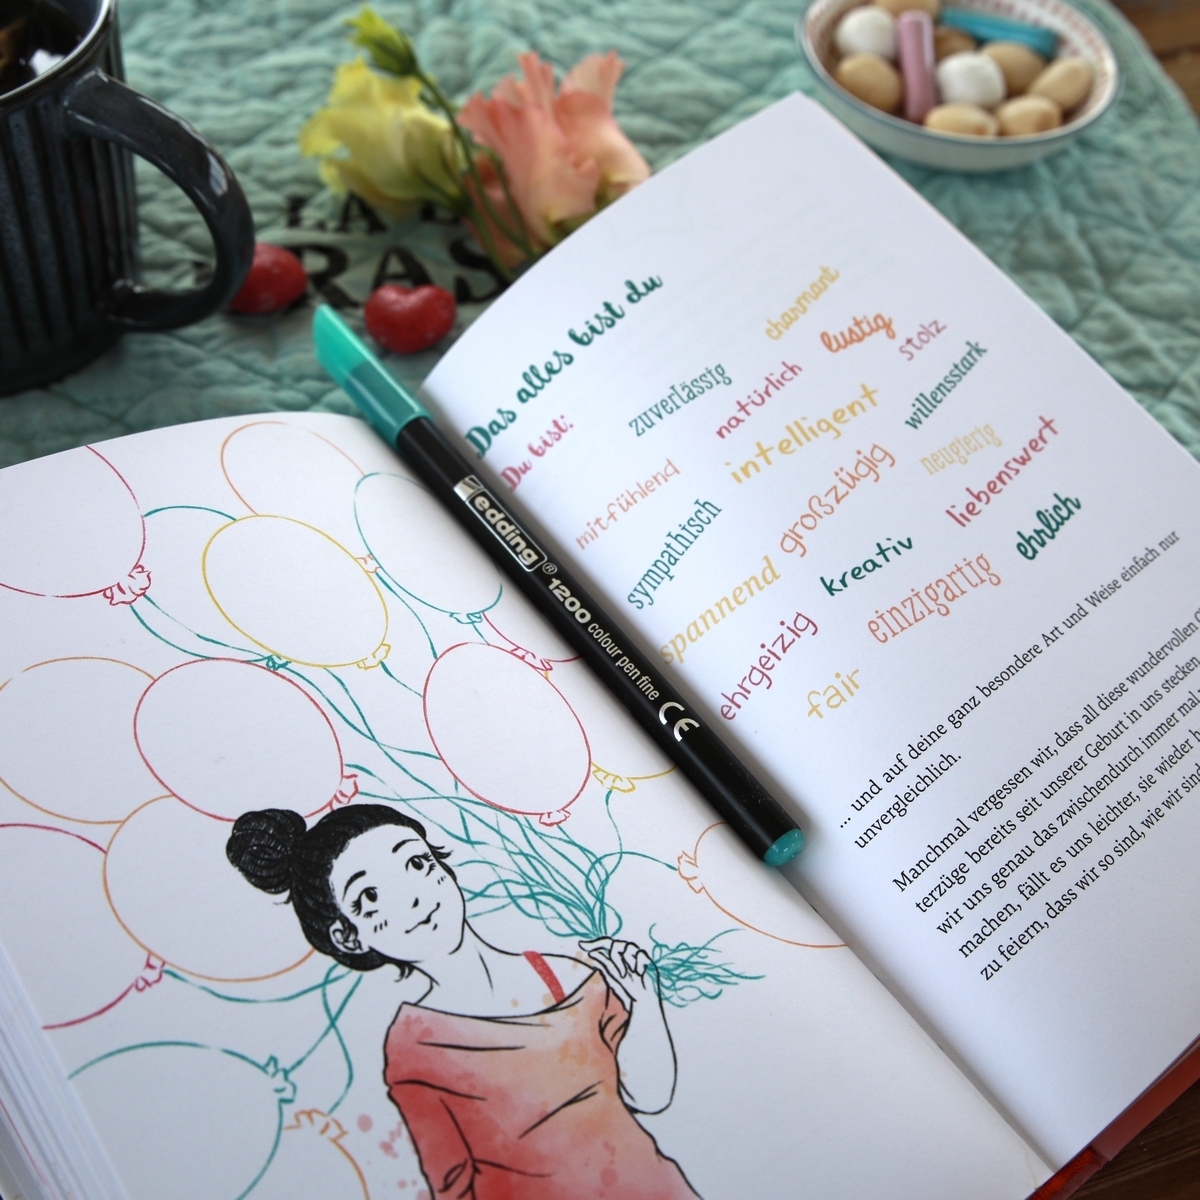 Das alles bist du
Du bist:
charmant
zuverlässig
lustig
stolz
natürlich
willensstark
mitfühlend
intelligent
neugierig
sympathisch
großzügig
liebenswert
spannend
kreativ
ehrlich
ehrgeizig
einzigartig
fair
... und auf deine ganz besondere Art und Weise einfach nur
unvergleichlich.
Manchmal vergessen wir, dass all diese wundervollen
terzüge bereits seit unserer Geburt in uns stecken
wir uns genau das zwischendurch immer mal
machen, fällt es uns leichter, sie wieder
zu feiern, dass wir so sind, wie wir sind
edding® 1200 colour pen fine CE
RAS